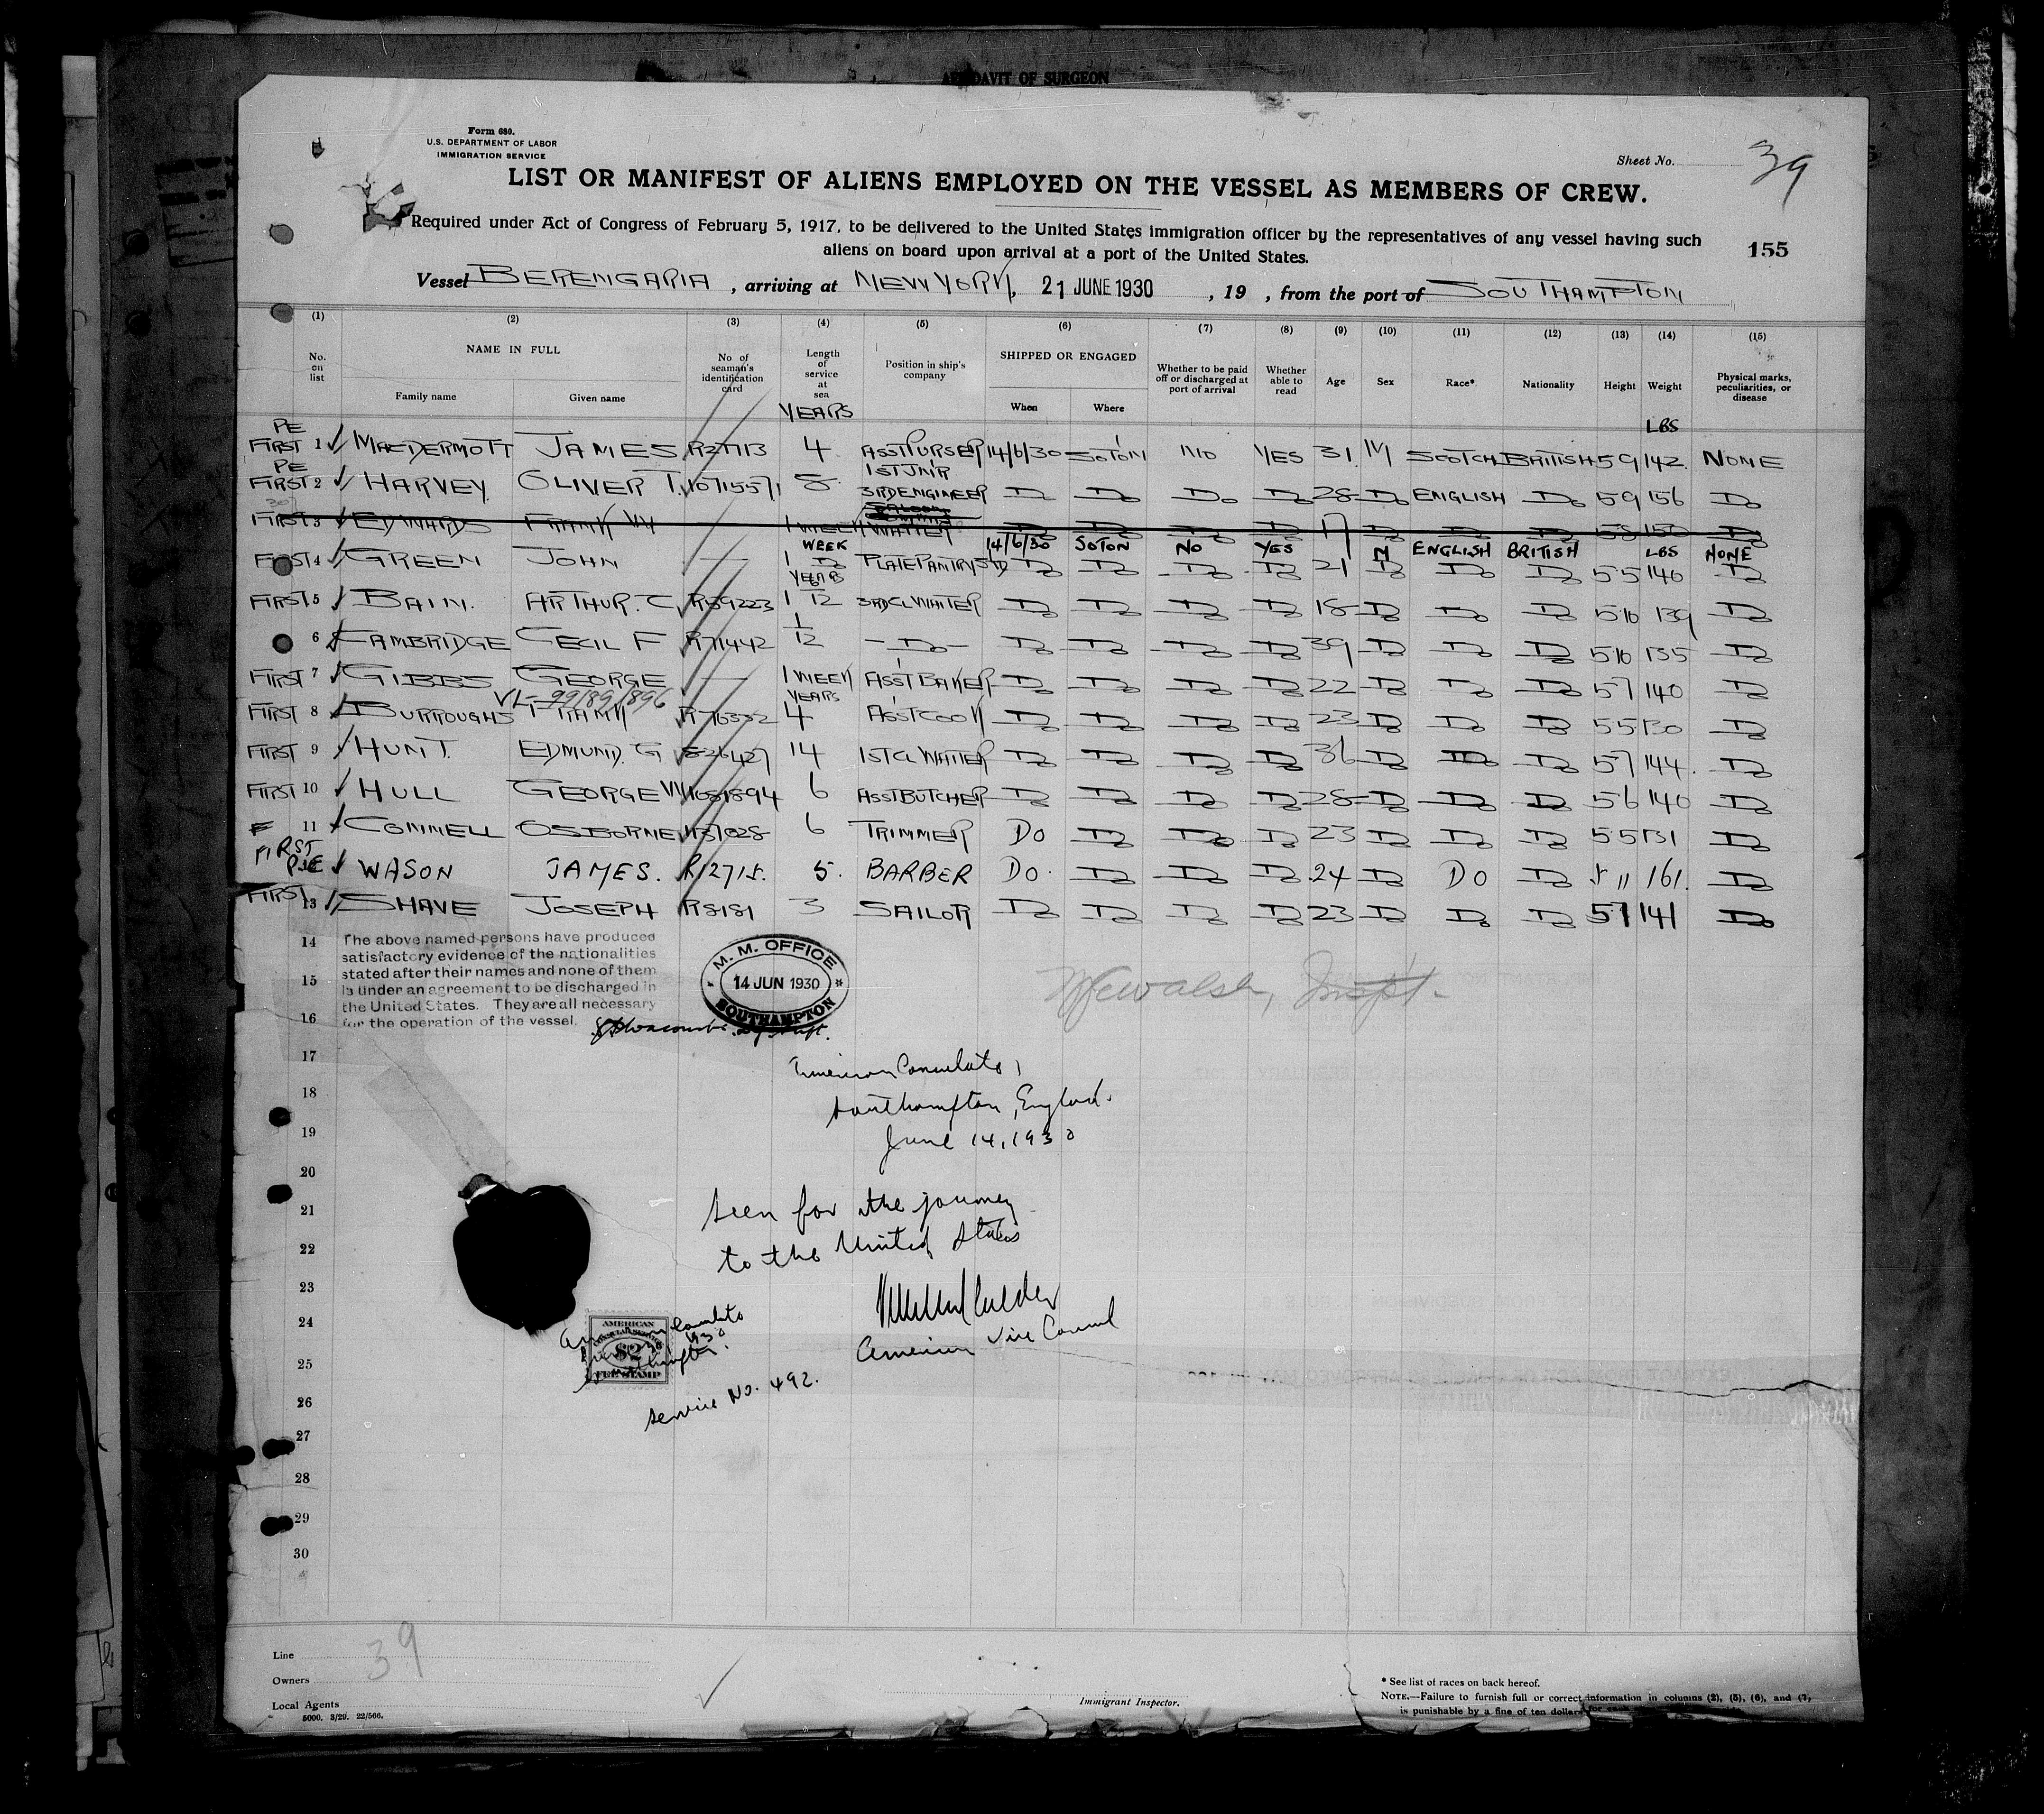 AFFIDAVIT OF SURGEON
Form 680.
U.S. DEPARTMENT OF LABOR
IMMIGRATION SERVICE
Sheet No. 39
LIST OR MANIFEST OF ALIENS EMPLOYED ON THE VESSEL AS MEMBERS OF CREW.
Required under Act of Congress of February 5, 1917, to be delivered to the United States immigration officer by the representatives of any vessel having such
aliens on board upon arrival at a port of the United States.
155
Vessel BERENGARIA, arriving at NEW YORK, 21 JUNE 1930, 19 , from the port of SOUTHAMPTON
(1) (2) (3) (4) (5) (6) (7) (8) (9) (10) (11) (12) (13) (14) (15)
No. on list NAME IN FULL Family name Given name No of seaman's identification card Length of service at sea Position in ship's company SHIPPED OR ENGAGED When Where Whether to be paid off or discharged at port of arrival Whether able to read Age Sex Race* Nationality Height Weight Physical marks, peculiarities, or disease
YEARS LBS
PE FIRST 1 MACDERMOTT JAMES R27713 4 ASST PURSER 14/6/30 SOTON NO YES 31 M SCOTCH BRITISH 59 142 NONE
PE FIRST 2 HARVEY OLIVER T. 1071557 8 1ST JNR 3RD ENGINEER Do Do Do Do 28 Do ENGLISH Do 59 156 Do
FIRST 3 EDWARDS FRANK W 1 WEEK WAITER Do Do Do Do 17 Do Do Do 58 150 Do
WEEK 14/6/30 SOTON NO YES M ENGLISH BRITISH LBS NONE
FIRST 4 GREEN JOHN — 1 Do PLATE PANTRY STD Do Do Do Do 21 Do Do Do 55 140 Do
YEARS
FIRST 5 BAIN. ARTHUR. C R59223 1 /12 3RD CL WAITER Do Do Do Do 18 Do Do Do 510 139 Do
6 CAMBRIDGE CECIL F R71442 1/12 — Do — Do Do Do Do 39 Do Do Do 510 135 Do
FIRST 7 GIBBS GEORGE — 1 WEEK ASST BAKER Do Do Do Do 22 Do Do Do 57 140 Do
VL-99/89/896 YEARS
FIRST 8 BURROUGHS FRANK R76552 4 ASST COOK Do Do Do Do 23 Do Do Do 55 130 Do
FIRST 9 HUNT. EDMUND. G 826427 14 1ST CL WAITER Do Do Do Do 36 Do Do Do 57 144. Do
FIRST 10 HULL GEORGE W 1081894 6 ASST BUTCHER Do Do Do Do 28 Do Do Do 56 140 Do
F 11 CONNELL OSBORNE 1137028 6 TRIMMER DO Do Do Do 23 Do Do Do 55 131 Do
FIRST P&E WASON JAMES. R12715. 5. BARBER DO. Do Do Do 24 Do DO Do 5 11 161. Do
FIRST 13 SHAVE JOSEPH R8181 3 SAILOR Do Do Do Do 23 Do Do Do 57 141 Do
14 The above named persons have produced
satisfactory evidence of the nationalities
stated after their names and none of them
15 is under an agreement to be discharged in
the United States. They are all necessary
16 for the operation of the vessel.
M. M. OFFICE
14 JUN 1930
SOUTHAMPTON
Walsh, Inspt.
17 American Consulate,
18 Southampton, England.
19 June 14, 1930
20
21 Seen for the journey
22 to the United States
23
24 American Vice Consul
American Consulate
1930
Southampton.
AMERICAN
CONSULAR SERVICE
$2
FEE STAMP
25
Service No. 492.
26
27
28
29
30
39
Line
Owners
Local Agents
5000. 3/29. 22/566.
Immigrant Inspector.
* See list of races on back hereof.
NOTE.—Failure to furnish full or correct information in columns (2), (5), (6), and (7,
is punishable by a fine of ten dollars for each